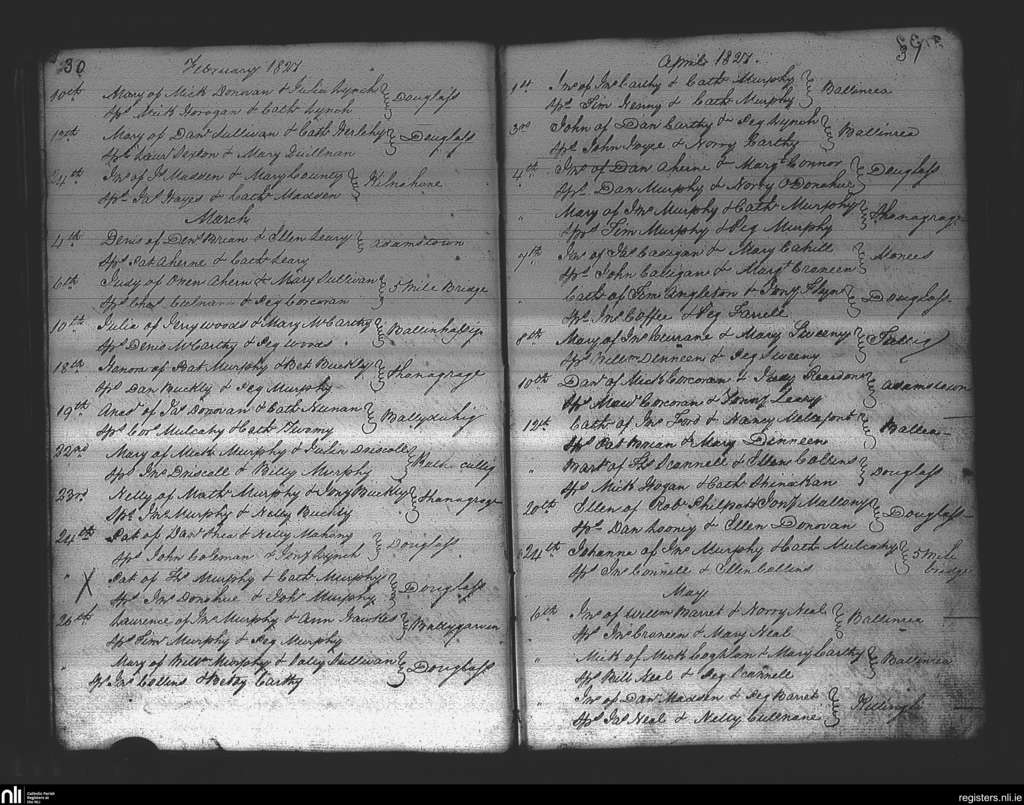 30
February 1827
10th Mary of Mick Donovan & Julia Lynch Douglass
Sps Mick Horogan & Cath Lynch
12th Mary of Danl Sullivan & Cath Herlehy Douglass
Sps Laur Sexton & Mary Quillnan
24th Jno of Js Madden & Mary County Kilnahone
Sps Jas Hayes & Cath Madden
March
4th Denis of Denis Brian & Ellen Leary Adamstown
Sps Pat Aherne & Cath Leary
6th Judy of Owen Ahern & Mary Sullivan 5 Mile Bridge
Sps Chas Culnan & Peg Corcoran
10th Julia of Jerry Woods & Mary McCarthy Ballinhassig
Sps Denis McCarthy & Peg Woods
18th Honora of Pat Murphy & Bet Buckley Shanagrage
Sps Dan Buckly & Peg Murphy
19th of Jas Donovan & Cath Nunan Ballyduhig
Sps Cors Mulcahy & Cath Twomy
22nd Mary of Mick Murphy & Julia Driscole
Sps Jno Driscoll & Billy Murphy
23rd Nelly of Math Murphy & Jony Buckley Shanagrage
Sps Jno Murphy & Nelly Buckly
24th Pat of Danl Shea & Nelly Mahony Douglass
Sps John Coleman & Jony Lynch
" X Pat of Ths Murphy & Cath Murphy Douglass
Sps Jno Donohue & Joh Murphy
26th Laurence of Jno Murphy & Ann Hawkes Ballygarvan
Sps Tim Murphy & Peg Murphy
" Mary of Willm Murphy & Poley Sullivan Douglass
Sps Jno Collins & Betsy Carthy
31
April 1827.
1st Jno of Jno Carthy & Cath Murphy Ballinrea
Sps Tim Henny & Cath Murphy
3rd John of Dan Carthy & Peg Lynch Ballinrea
Sps John Joyce & Norry Carthy
4th Jno of Dan Aherne & Margt Connor Douglass
Sps Dan Murphy & Norry O'Donohue
" Mary of Jno Murphy & Cath Murphy Shanagrage
Sps Tim Murphy & Peg Murphy
7th Jas of Jas Casigan & Mary Cahill Monees
Sps John Caligan & Margt Croneen
" Cath of Tim Angleton & Jony Flyn Douglass
Sps Jno Coffee & Peg Farrell
8th Mary of Jno Currane & Mary Sweeny
Sps Willm Denneen & Peg Sweeny
10th Danl of Mick Corcoran & Reardon Adamstown
Sps Corcoran & Jony Leary
12th Cath of Jno Ford & Nancy
Sps Pat Brian & Mary Dinneen
" Mart of Ths Scannell & Ellen Collins Douglass
Sps Mick Hogan & Cath Shinahan
20th Ellen of Robt Philpot & Jony Mallony Douglass
Sps Dan Looney & Ellen Donovan
24th Johanna of Jno Murphy & Cath Mulcahy 5 Mile
Sps Jno Connell & Ellen Collins bridge
May
6th Jno of Willm Barret & Norry Neal Ballinrea
Sps Jno Croneen & Mary Neal
" Mick of Mick Coghlan & Mary Carthy Ballinrea
Sps Bill Neal & Peg Scannell
" Jno of Danl Madden & Peg Barret Killingly
Sps Jas Neal & Nelly Cullnane
nli
Catholic Parish
Registers at
the NLI
registers.nli.ie